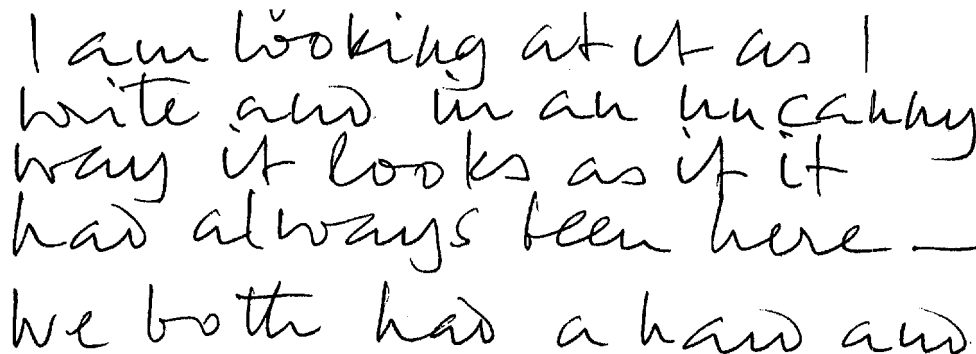 I am looking at it as I
write and in an uncanny
way it looks as if it
had always been here —
We both had a hand and